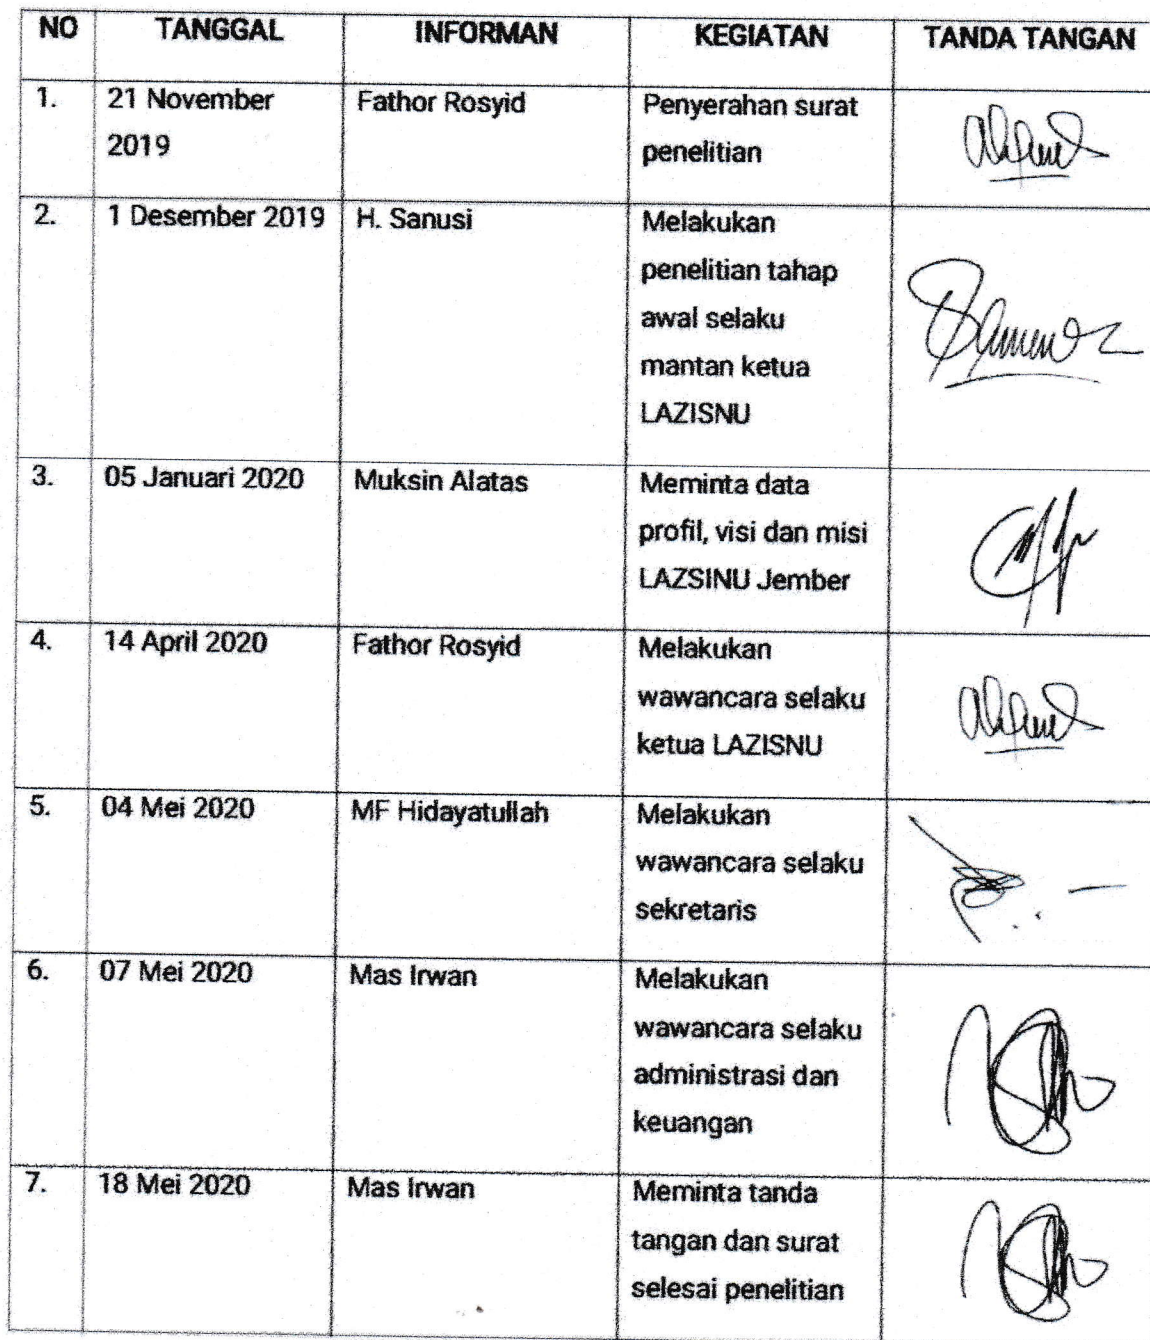 NO TANGGAL INFORMAN KEGIATAN TANDA TANGAN
1. 21 November Fathor Rosyid Penyerahan surat
2019 penelitian
2. 1 Desember 2019 H. Sanusi Melakukan
penelitian tahap
awal selaku
mantan ketua
LAZISNU
3. 05 Januari 2020 Muksin Alatas Meminta data
profil, visi dan misi
LAZSINU Jember
4. 14 April 2020 Fathor Rosyid Melakukan
wawancara selaku
ketua LAZISNU
5. 04 Mei 2020 MF Hidayatullah Melakukan
wawancara selaku
sekretaris
6. 07 Mei 2020 Mas Irwan Melakukan
wawancara selaku
administrasi dan
keuangan
7. 18 Mei 2020 Mas Irwan Meminta tanda
tangan dan surat
selesai penelitian